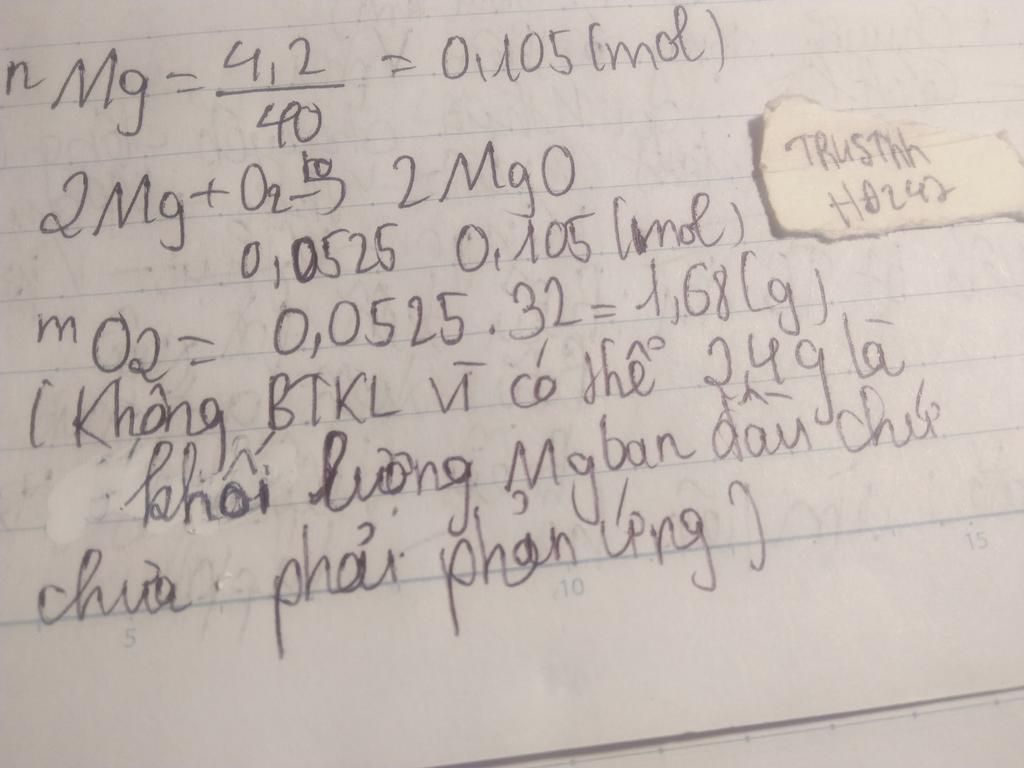 nMg = 4,2 / 40 = 0,105 (mol)
2Mg + O2 to→ 2MgO
0,0525 0,105 (mol)
mO2 = 0,0525 . 32 = 1,68 (g)
(Không BTKL vì có thể 2,4g là
khối lường Mg ban đầu chứ
chưa phải phản ứng)
TRUSTAK
5
10
15